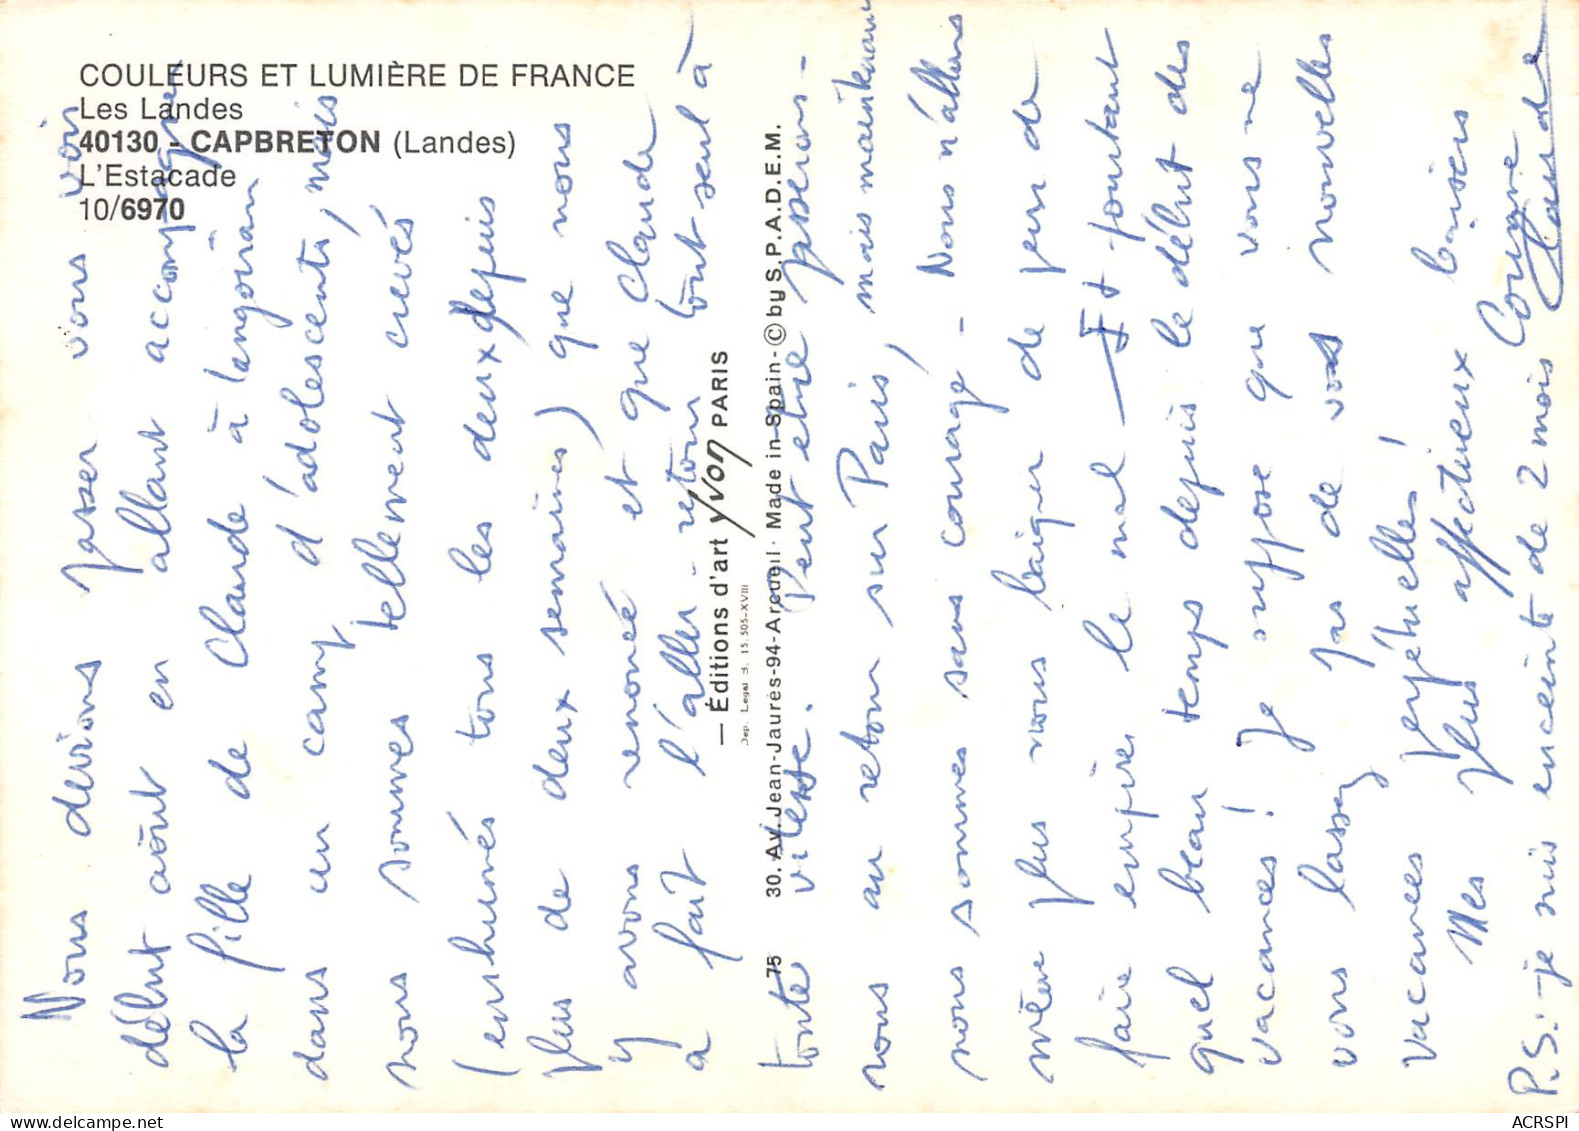 COULEURS ET LUMIÈRE DE FRANCE
Les Landes
40130 - CAPBRETON (Landes)
L'Estacade
10/6970
— Éditions d'art yvon PARIS
Dep. Legal B. 15.505-XVIII
75 30. Av. Jean-Jaurès-94-Arcueil · Made in Spain - © by S.P.A.D.E.M.
Nous devions passer vous voir
début août en allant accompagner
la fille de Claude à Langoiran
dans un camp d'adolescents, mais
nous sommes tellement crevés
(enrhumés tous les deux depuis
plus de deux semaines) que nous
y avons renoncé et que Claude
a fait l'aller-retour tout seul à
toute vitesse. Peut etre passerons-
nous au retour sur Paris, mais maintenant
nous sommes sans courage - Nous n'allons
même plus nous baigner de peur de
faire empirer le mal - Et pourtant
quel beau temps depuis le début des
vacances! Je suppose que vous ne
vous lassez pas de vos nouvelles
vacances perpétuelles!
Mes plus affectueux baisers
Claude
P.S. - je suis enceinte de 2 mois
ACRSPI